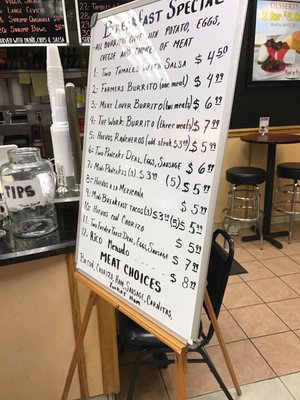 Breakfast Special
All burritos come with potato, eggs, cheese and choice of meat
1- Two Tamales with Salsa $4.50
2- Farmers Burrito (one meat) $4.99
3- Meat Lover Burrito (two meats) $6.99
4- The Work Burrito (three meats) $7.99
5- Huevos Rancheros (add steak $3.99) $5.99
6- Two Pancake Deal, Eggs, Sausage $6.99
7- Mini Pancakes (3) $3.99 (5) $5.99
8- Huevos a la Mexicana $5.99
9- Mini Breakfast Tacos (3) $3.99 (5) $5.99
10- Huevos con Chorizo $5.99
11- Two French Toast Deal, Eggs, Sausage $7.99
12- Rico Menudo $8.99
Meat Choices
Bacon, Chorizo, Ham, Sausage, Carnitas,
Turkey Ham
TIPS
DESSERTS